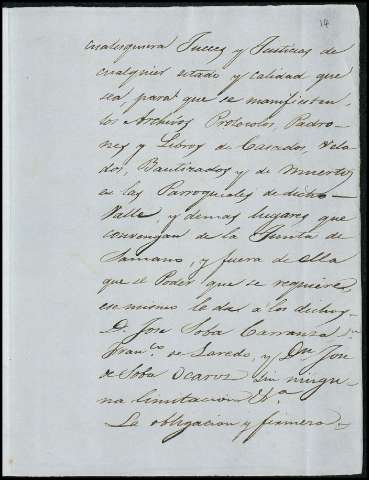 14
cualesquiera Jueces y Justicias de
cualquier estado y calidad que
sea, para que se manifiesten,
los Archivos Protocolos, Padro-
nes y Libros de Casados, Vela-
dos, Bautizados y de muertos
en las Parroquiales de dicho
Valle, y demas lugares que
convengan de la Junta de
Samano, y fuera de ella
que el Poder que se requiere,
ese mismo le da a los dichos
D. Jose Soba Carranza, Dn
Franco de Laredo, y Dn Jose
de Soba Ocaroz sin ningu-
na limitacion Na
La obligacion y firmera-